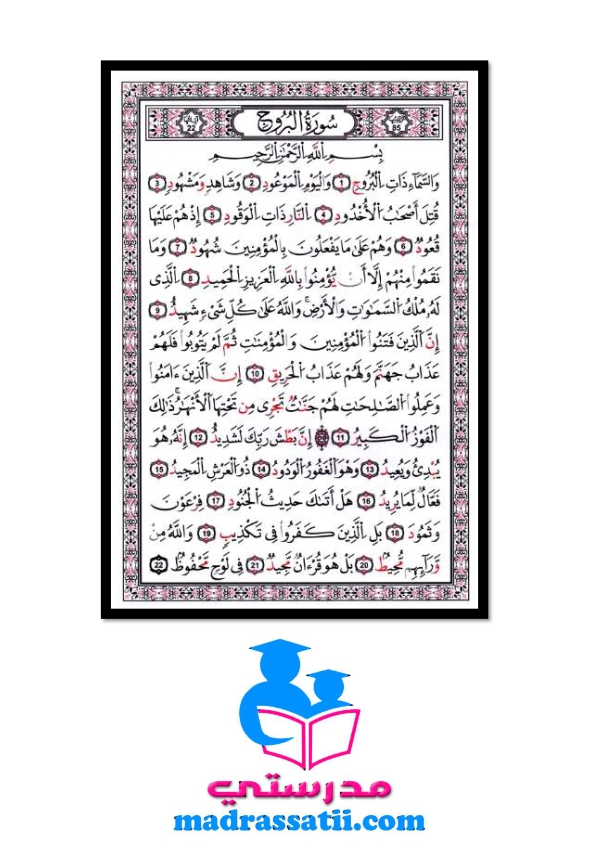 آياتها 22 سُورَةُ الْبُرُوجِ 85
بِسْمِ اللَّهِ الرَّحْمَٰنِ الرَّحِيمِ
وَالسَّمَاءِ ذَاتِ الْبُرُوجِ 1 وَالْيَوْمِ الْمَوْعُودِ 2 وَشَاهِدٍ وَمَشْهُودٍ 3
قُتِلَ أَصْحَابُ الْأُخْدُودِ 4 النَّارِ ذَاتِ الْوَقُودِ 5 إِذْ هُمْ عَلَيْهَا
قُعُودٌ 6 وَهُمْ عَلَىٰ مَا يَفْعَلُونَ بِالْمُؤْمِنِينَ شُهُودٌ 7 وَمَا
نَقَمُوا مِنْهُمْ إِلَّا أَنْ يُؤْمِنُوا بِاللَّهِ الْعَزِيزِ الْحَمِيدِ 8 الَّذِي
لَهُ مُلْكُ السَّمَاوَاتِ وَالْأَرْضِ وَاللَّهُ عَلَىٰ كُلِّ شَيْءٍ شَهِيدٌ 9
إِنَّ الَّذِينَ فَتَنُوا الْمُؤْمِنِينَ وَالْمُؤْمِنَاتِ ثُمَّ لَمْ يَتُوبُوا فَلَهُمْ
عَذَابُ جَهَنَّمَ وَلَهُمْ عَذَابُ الْحَرِيقِ 10 إِنَّ الَّذِينَ ءَامَنُوا
وَعَمِلُوا الصَّالِحَاتِ لَهُمْ جَنَّاتٌ تَجْرِي مِن تَحْتِهَا الْأَنْهَارُ ذَٰلِكَ
الْفَوْزُ الْكَبِيرُ 11 إِنَّ بَطْشَ رَبِّكَ لَشَدِيدٌ 12 إِنَّهُ هُوَ
يُبْدِئُ وَيُعِيدُ 13 وَهُوَ الْغَفُورُ الْوَدُودُ 14 ذُو الْعَرْشِ الْمَجِيدُ 15
فَعَّالٌ لِمَا يُرِيدُ 16 هَلْ أَتَاكَ حَدِيثُ الْجُنُودِ 17 فِرْعَوْنَ
وَثَمُودَ 18 بَلِ الَّذِينَ كَفَرُوا فِي تَكْذِيبٍ 19 وَاللَّهُ مِن
وَرَائِهِم مُّحِيطٌ 20 بَلْ هُوَ قُرْءَانٌ مَّجِيدٌ 21 فِي لَوْحٍ مَّحْفُوظٍ 22
مدرستي
madrassatii.com